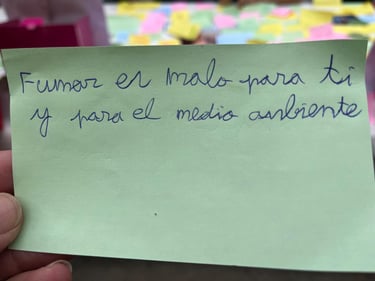 Fumar es malo para ti
y para el medio ambiente